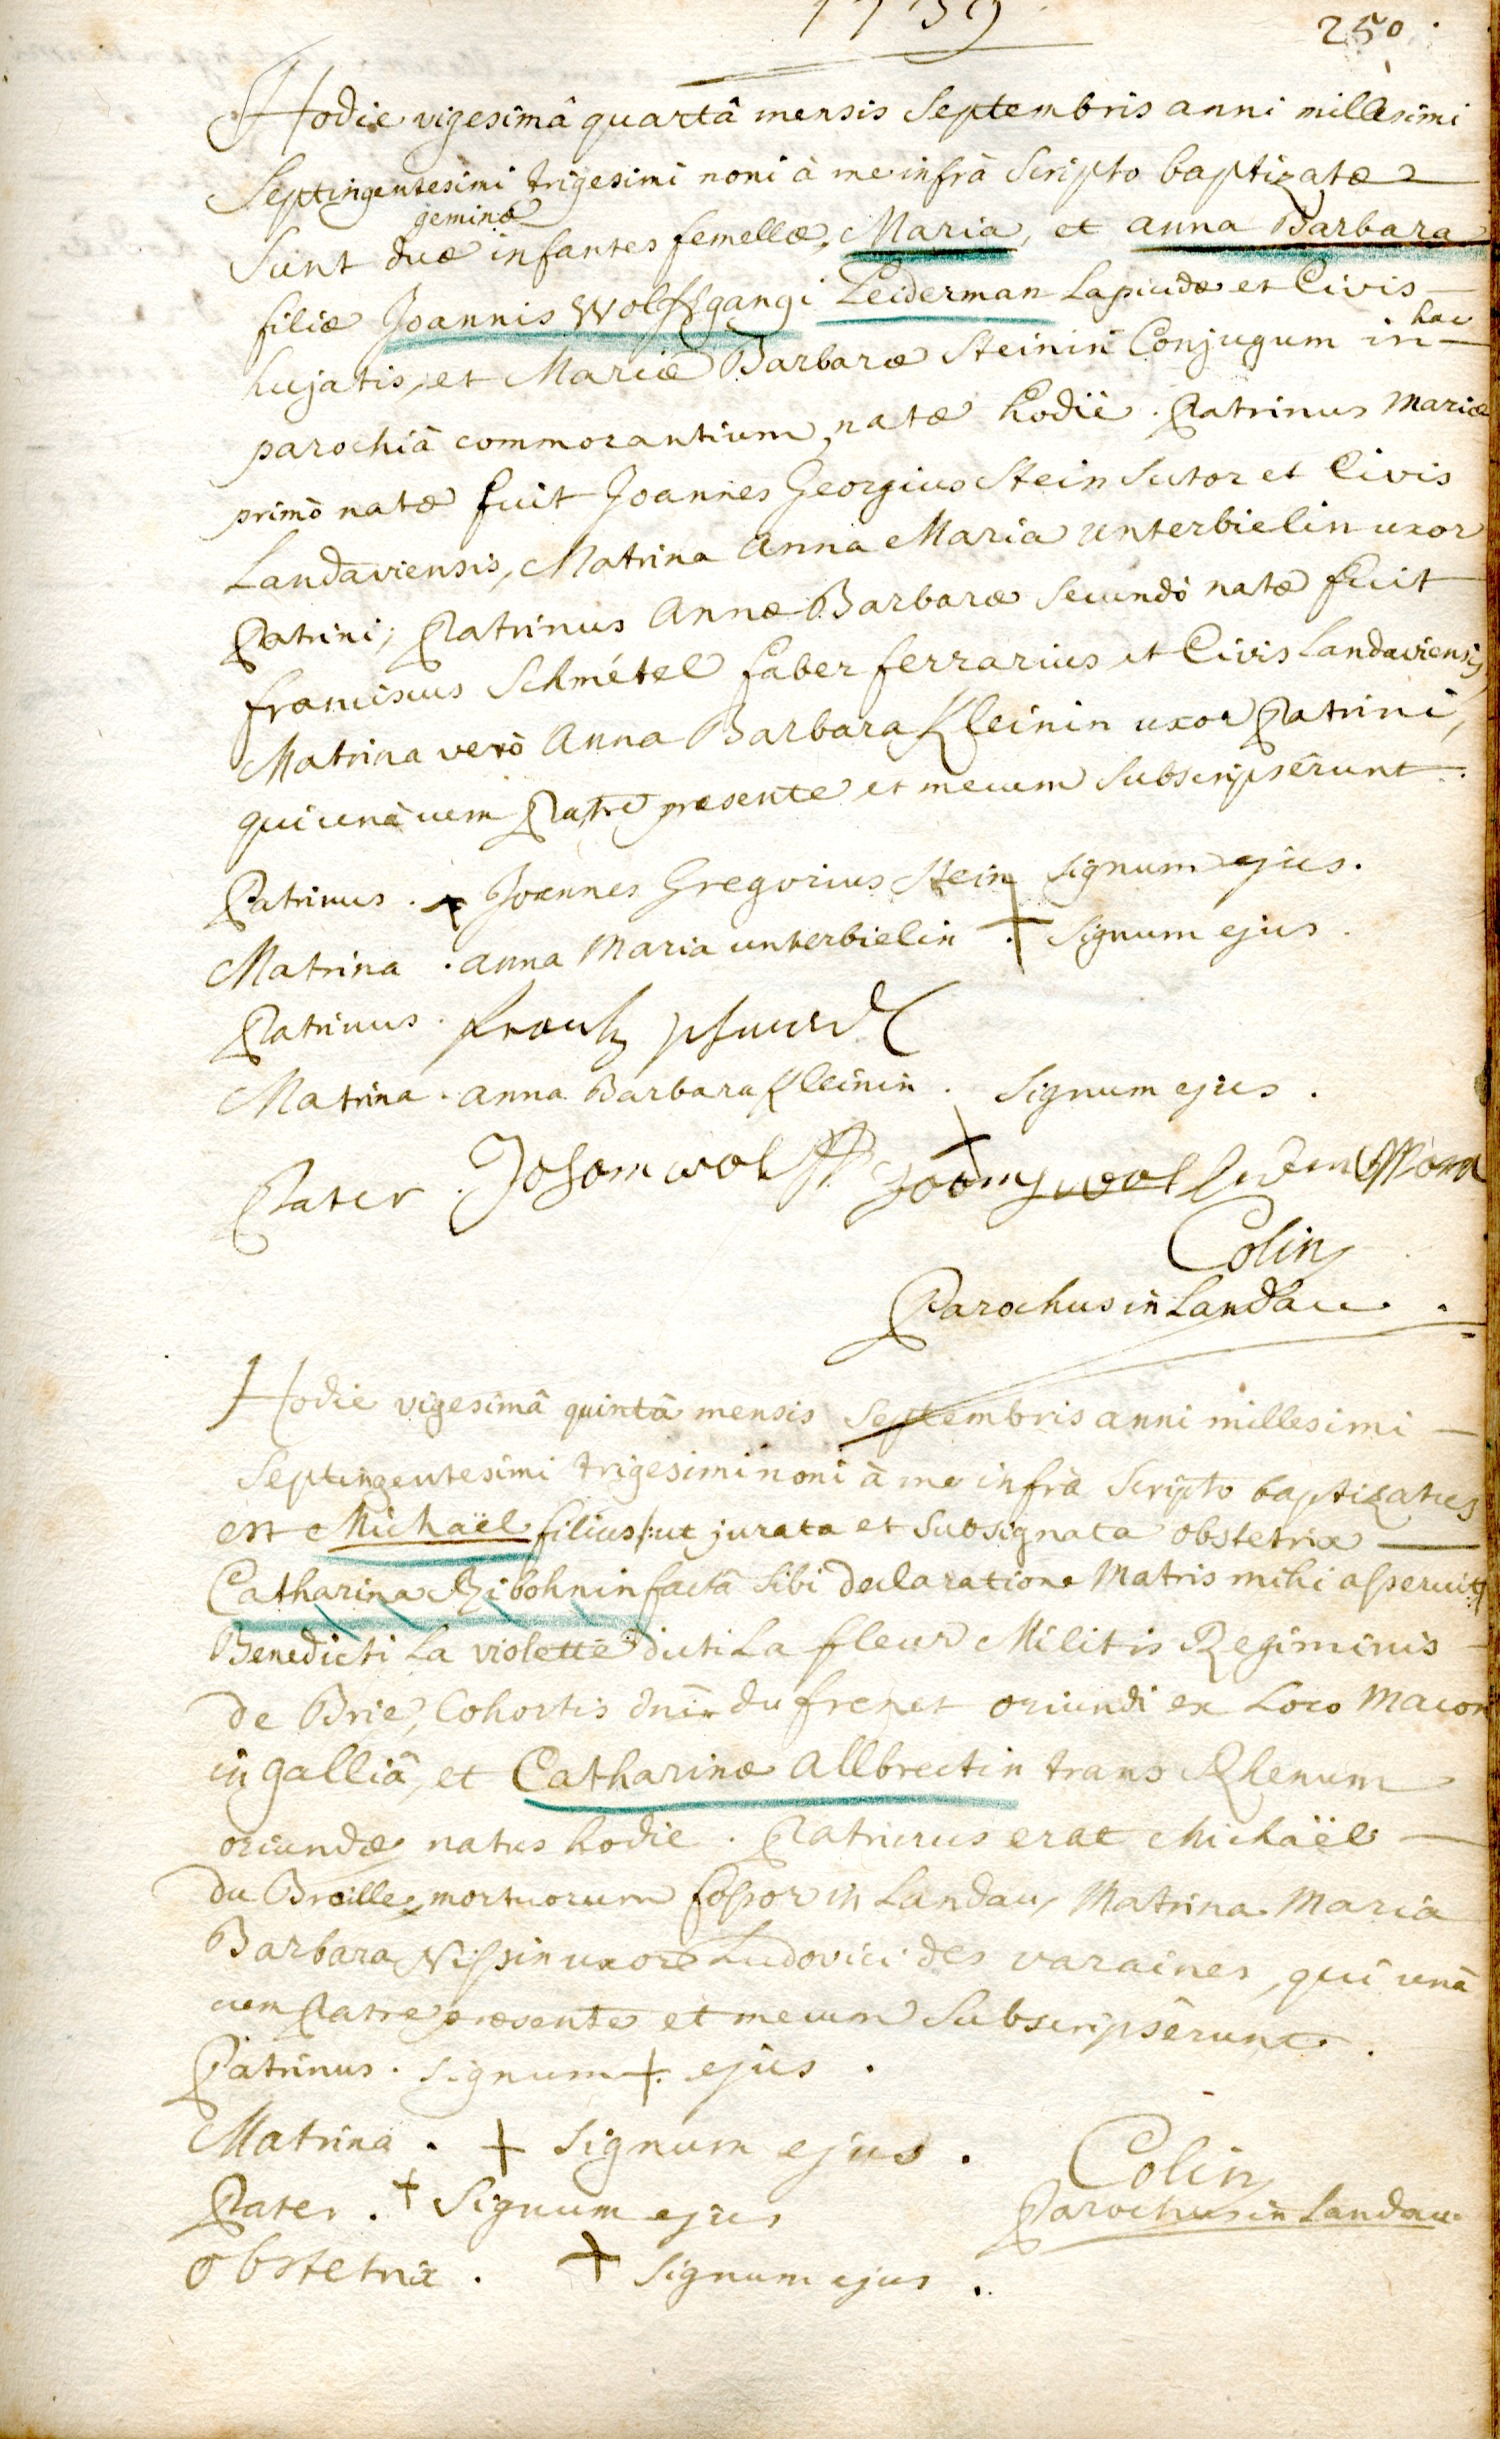 1739
250
Hodie vigesimâ quartâ mensis Septembris anni millesimi
Septingentesimi trigesimi noni à me infrà Scripto baptizatæ
geminæ
Sunt duæ infantes femellæ, Maria, et anna Barbara
filiæ Joannis Wolffgangi Leiderman Lapicidæ et Civis
hac
hujatis, et Mariæ Barbaræ Steinin Conjugum in
parochiâ commorantium, natæ hodiè. Patrinus Mariæ
primò natæ fuit Joannes Georgius Stein Sutor et Civis
Landaviensis, Matrina Anna Maria unterbielin uxor
Patrini; Patrinus Annæ Barbaræ Secundò natæ fuit
franciscus Schmétel faber ferrarius et Civis Landaviensis,
Matrina verò Anna Barbara Kleinin uxor Patrini,
qui unà cum Patre præsente et mecum Subscripsêrunt.
Patrinus. + Joannes Gregorius Stein Signum ejus.
Matrina. anna Maria unterbielin. + Signum ejus.
Patrinus. frantz
Matrina. anna Barbara Kleinin. + Signum ejus.
Pater.
Colin
Parochus in Landau.
Hodie vigesimâ quintâ mensis Septembris anni millesimi
Septingentesimi trigesimi noni à me infrà Scripto baptizatus
est Michaël filius /: ut jurata et Subsignata obstetrix
Catharina Ribohnin factâ Sibi declaratione Matris mihi asseruit :/
Benedicti La violette dicti La fleur Militis Regiminis
de Brie, Cohortis dni du frenet oriundi ex Loco Macon
in galliâ, et Catharinæ Allbrectin trans Rhenum
oriundæ, natus hodie. Patrinus erat Michaël
du Breille, mortuorum fossor in Landau, Matrina Maria
Barbara Nissin uxor Ludovici des varaines, qui unâ
cum Patre præsente et mecum Subscripsêrunt.
Patrinus. Signum + ejus.
Matrina. + Signum ejus.
Colin
Pater. + Signum ejus
Parochus in Landau.
obstetrix. + Signum ejus.